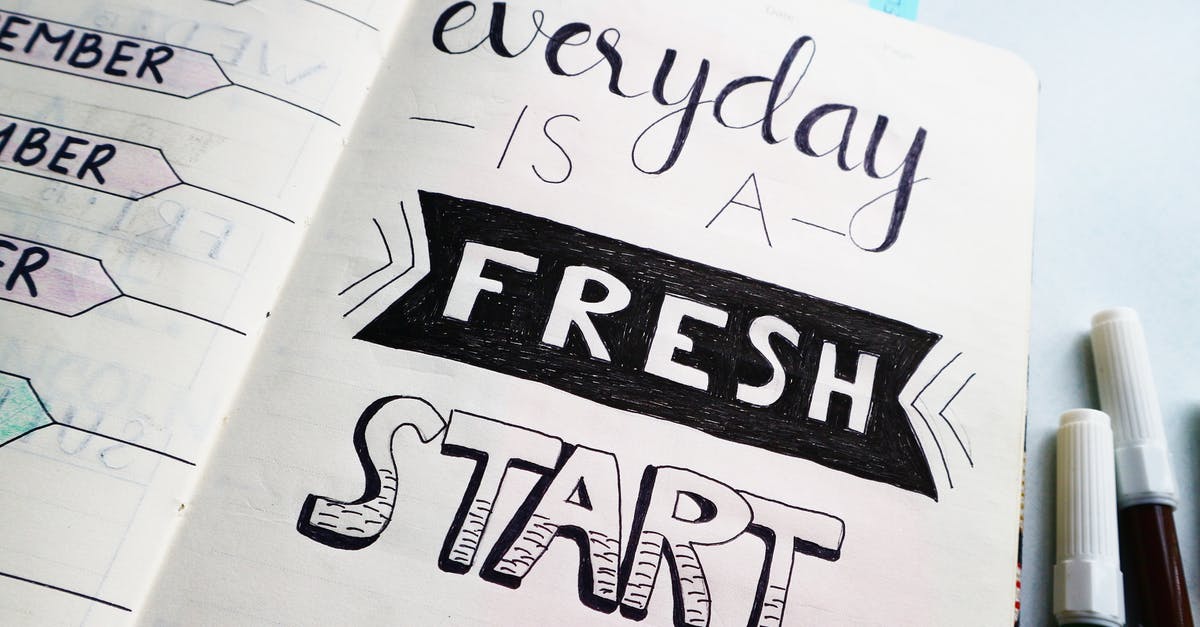 EMBER
MBER
ER
everyday
— IS A —
FRESH
START